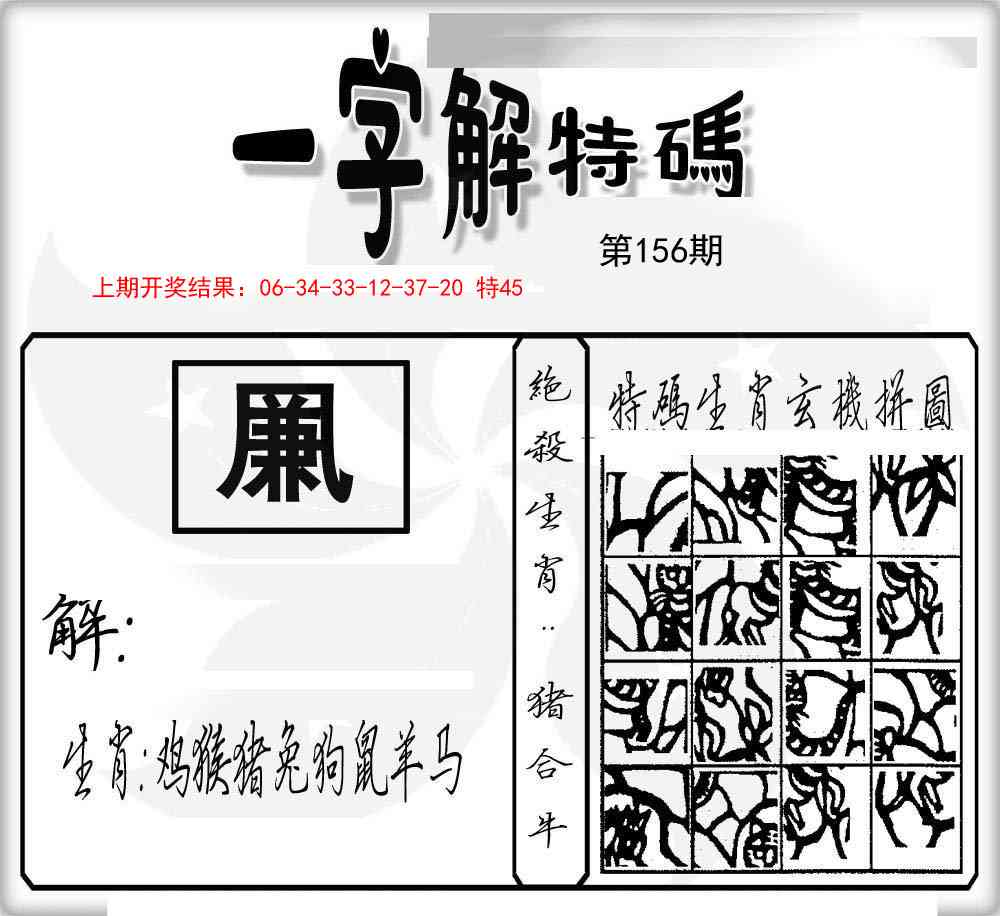 一字解特碼
第156期
上期开奖结果：06-34-33-12-37-20 特45
解:
生肖:鸡猴猪兔狗鼠羊马
絶殺生肖··猪合牛
特碼生肖玄機拼圖